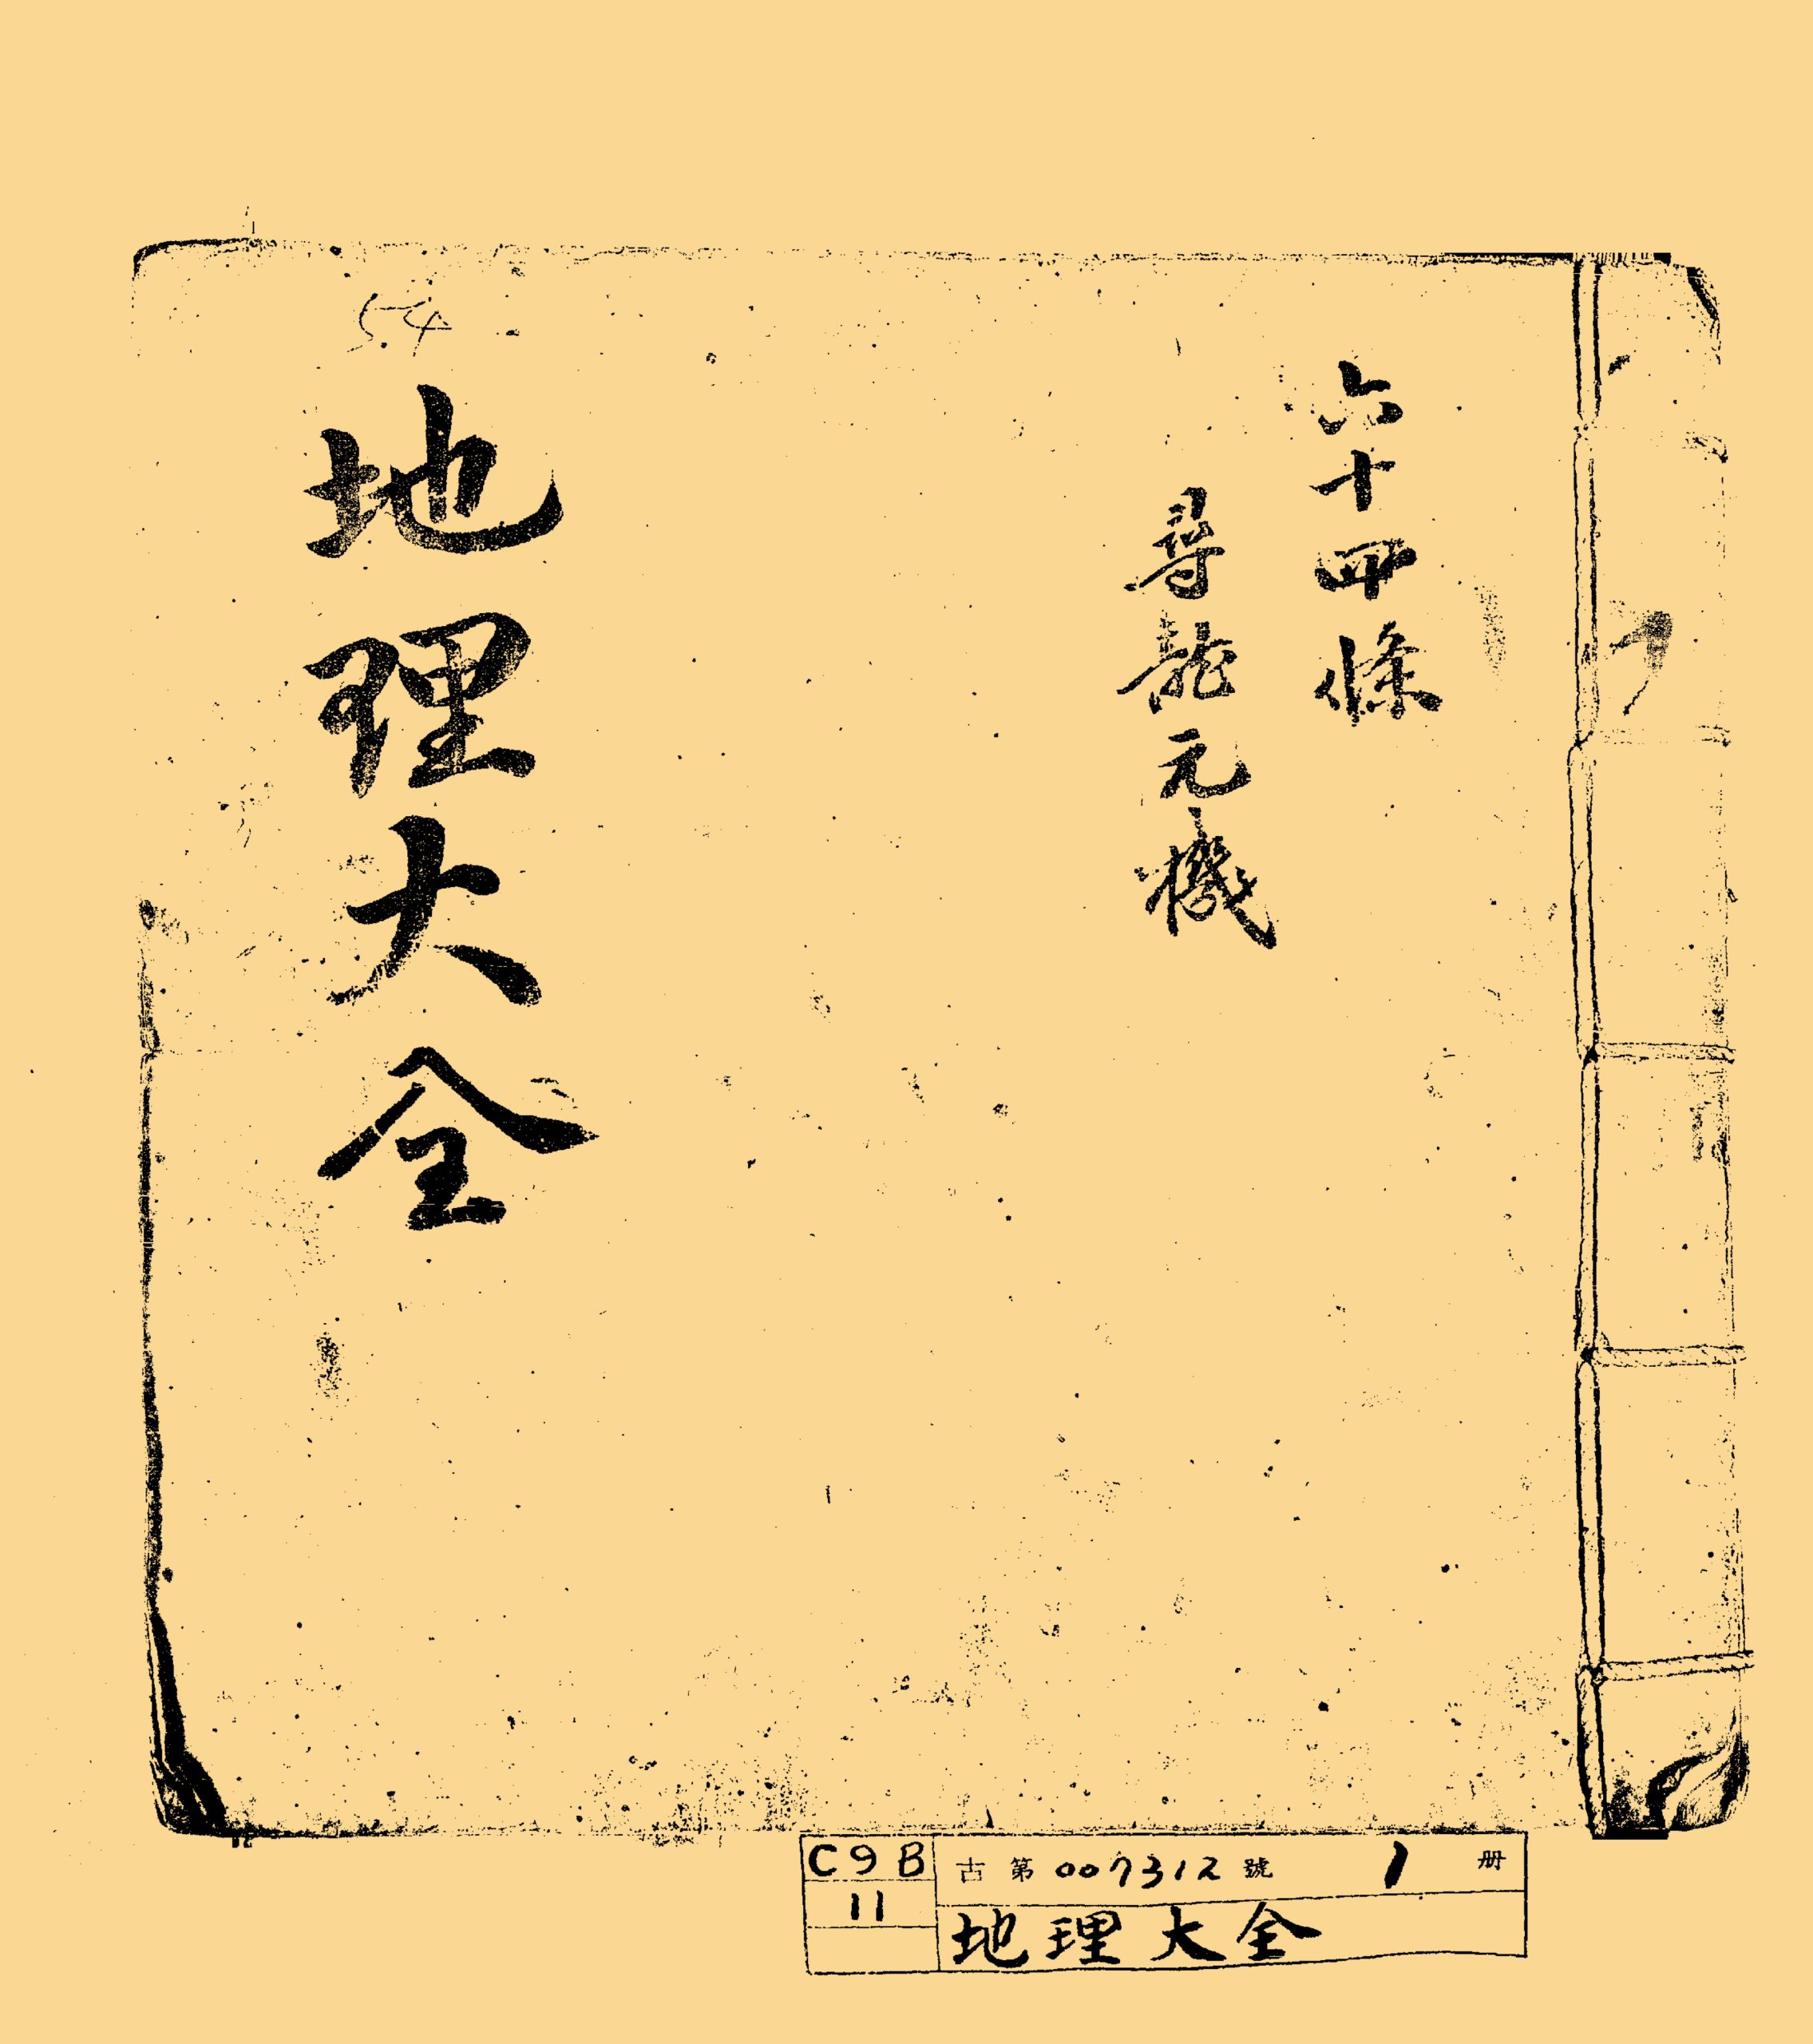 六十四條
尋龍元機
地理大全
54
C9B
11
古第007312號 1 册
地理大全